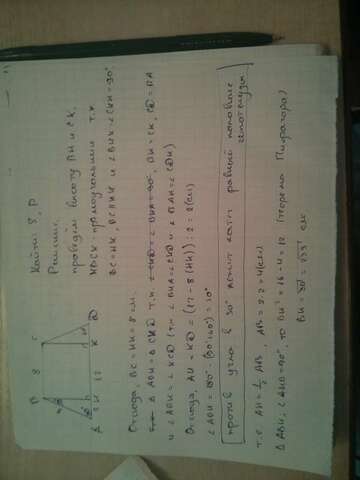 Найти S, P
Решение.
проведем высоту BH и CK.
HBCK прямоугольник т.к.
BC=HK, BC||HK и ∠BHK=∠CKH=90°.
B 8 C
60°
A 2 H 12 K D
Отсюда, BC = HK = 8 см.
△ABH = △CKD т.к. ∠CKD = ∠BHA = 90°, BH = CK, CD = BA
и ∠ABH = ∠KCD (т.к. ∠BHA = ∠CKD и ∠BAH = ∠CDK)
Отсюда, AH = KD = (12 - 8 (HK)) : 2 = 2 (см)
∠ABH = 180° - (90°+60°) = 30°
против угла в 30° лежит катет равный половине
гипотенузы.
т.е. AH = 1/2 AB, AB = 2·2 = 4 (см)
△ABH, ∠AHB = 90°, то BH² = 16 - 4 = 12 (теорема Пифагора)
BH =